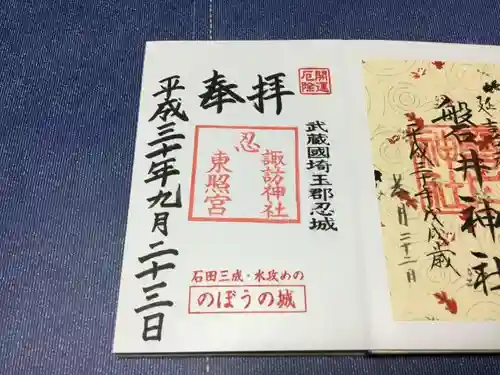 開運
厄除
奉拝
武蔵國埼玉郡忍城
忍
諏訪神社
東照宮
平成三十年九月二十三日
石田三成・水攻めの
のぼうの城
磐井神社
平成三十年戊戌歳
九月二十二日